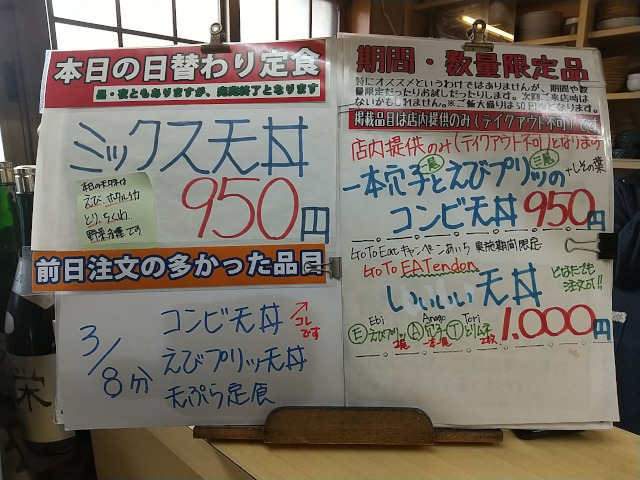 本日の日替わり定食
昼・夜ともありますが、完売終了となります
ミックス天丼
本日のミックスは
えび、ホウボウ、イカ
とり、ちくわ、
野菜各種です
950円
前日注文の多かった品目
3/8分
コンビ天丼
えびプリッ天丼
天ぷら定食
コレです
期間・数量限定品
特にオススメというわけではありませんが、期間や数
量限定だったりお試しだったりします。次回ご来店時は
ないかもしれません。※ご飯大盛りは50円増となります。
掲載品目は店内提供のみ(テイクアウト不可)です
店内提供のみ(テイクアウト不可)となります
一本穴子とえびプリッの
一尾
三尾
+しその葉
コンビ天丼 950円
GoToEatキャンペーンあいち 実施期間限定
GoTo EATendon
いいいい天丼
どなたでも
注文可!!
Ebi Anago Tori
Ⓔえびプリッ Ⓐ穴子 Ⓣとりムネ
2尾 一本 2枚
1.000円
栄